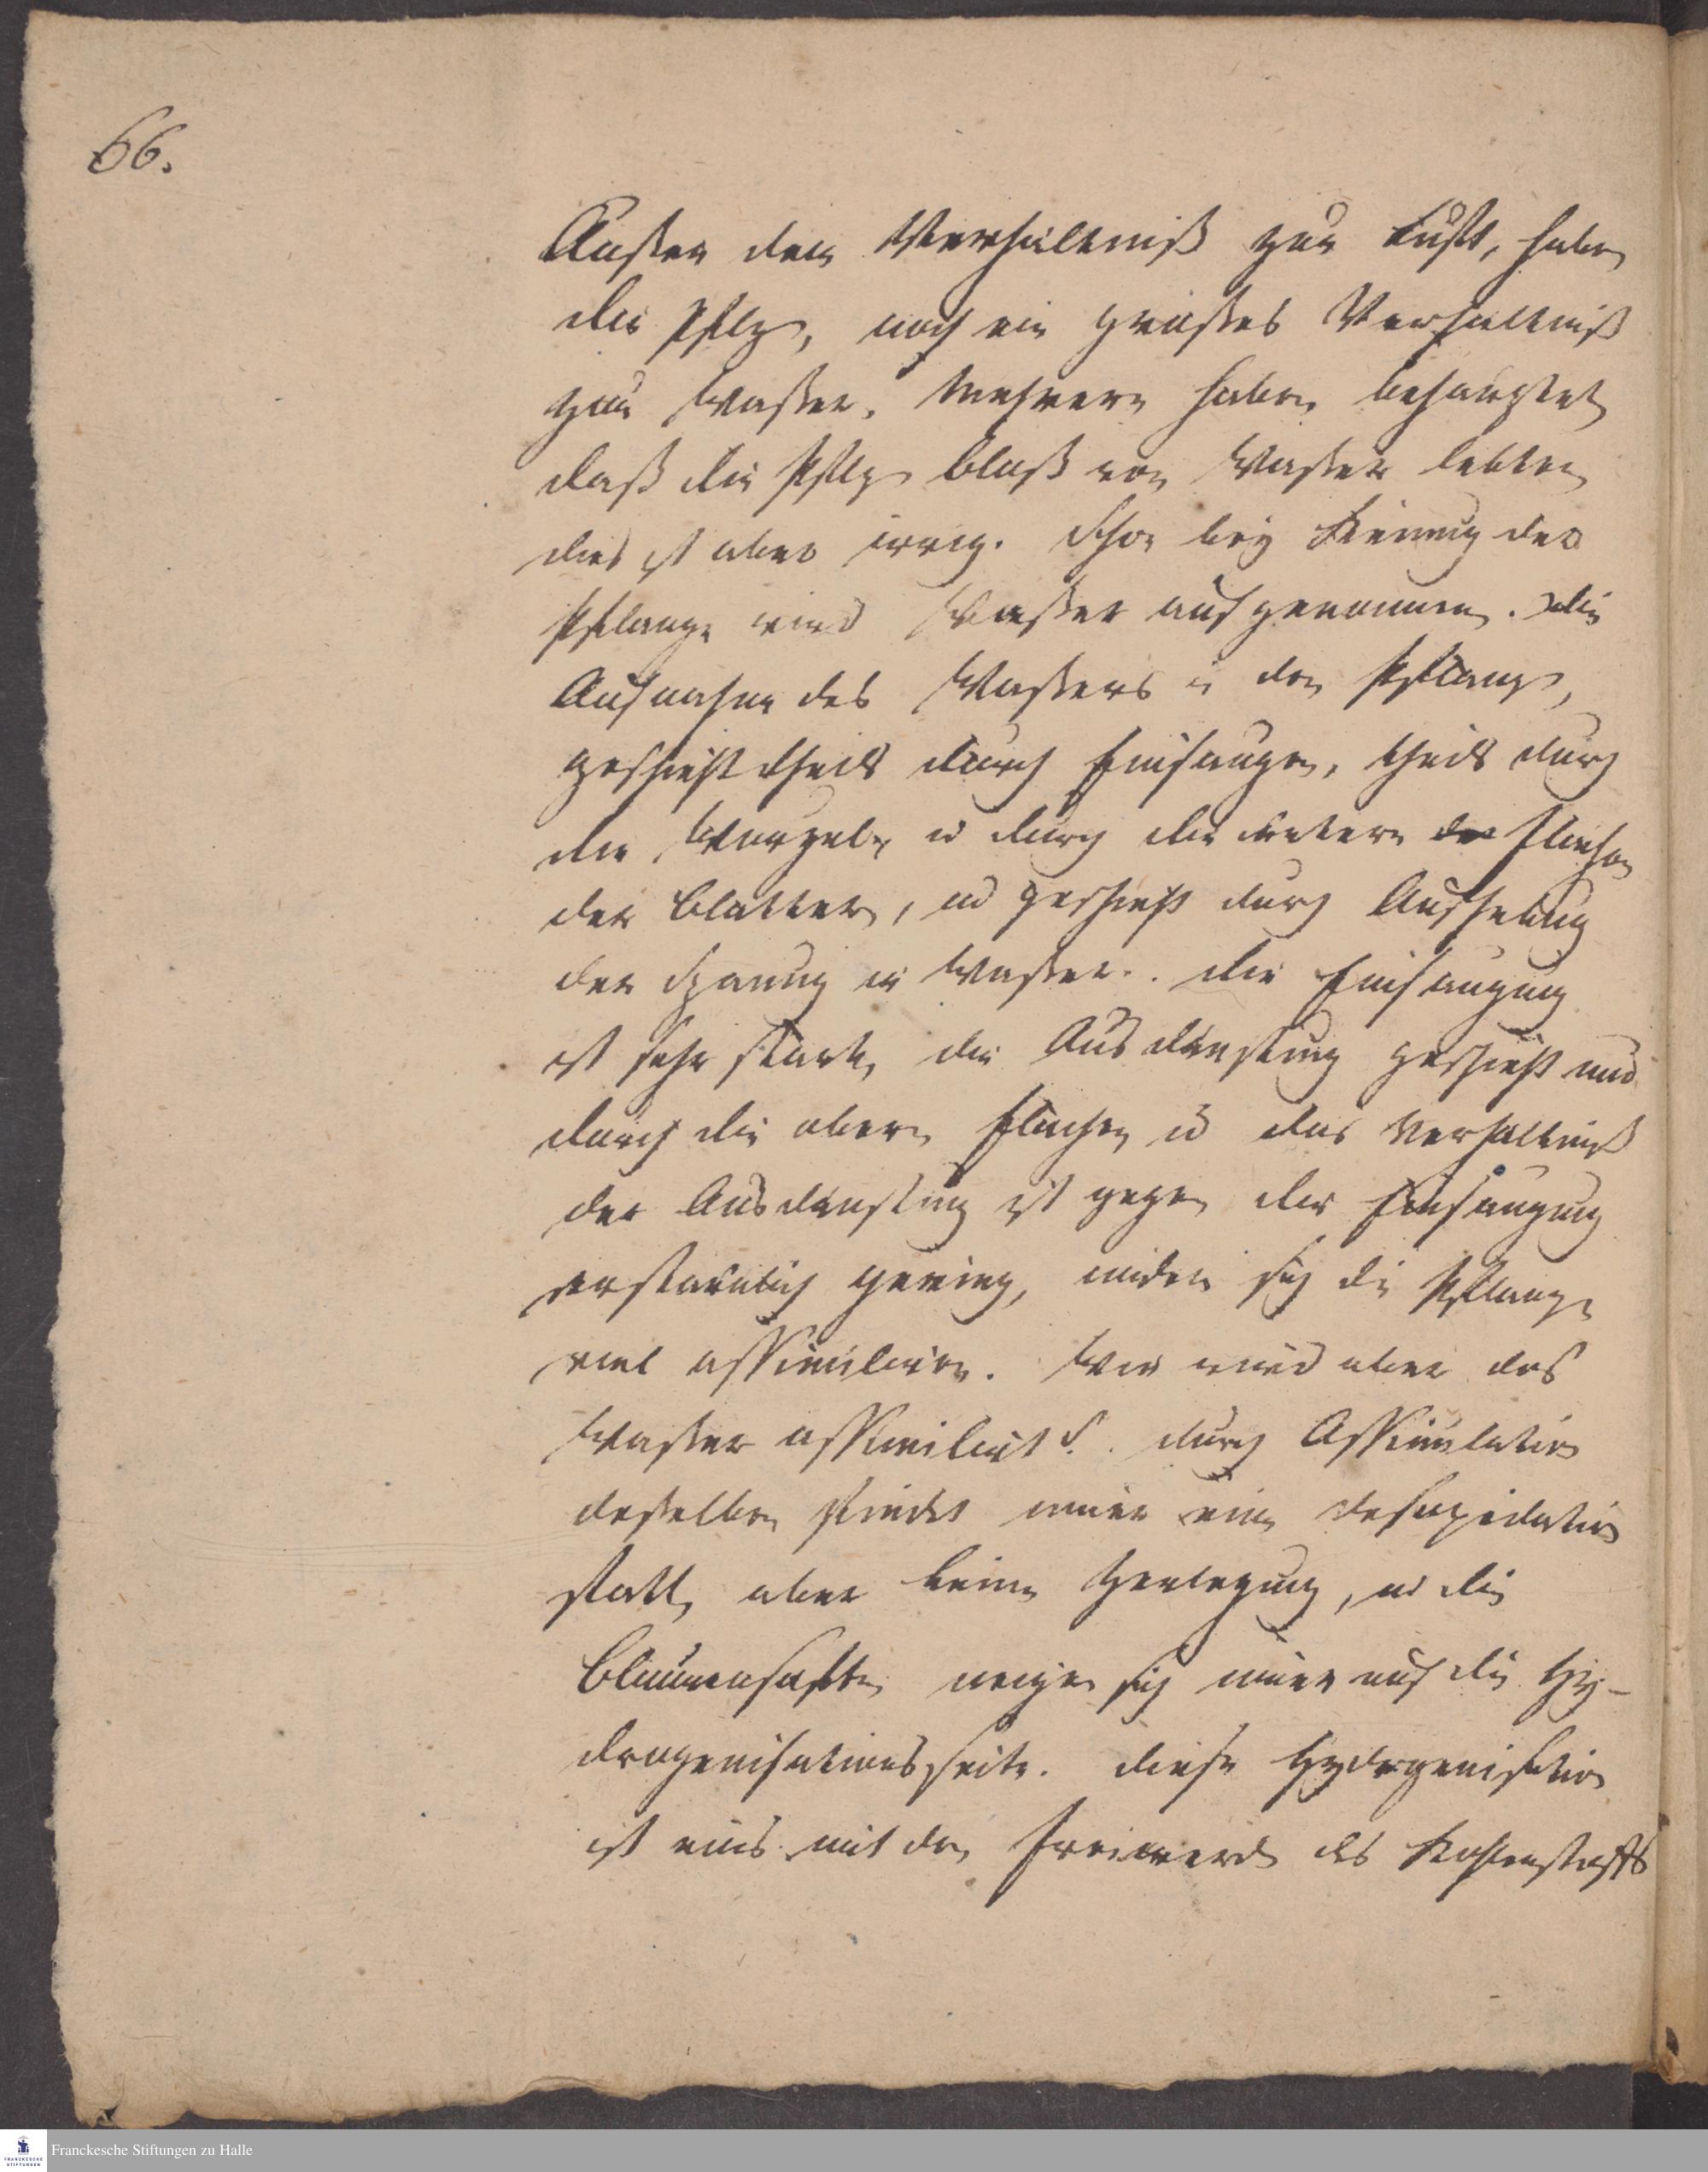 66.
Außer dem Verhältniß zur Luft, haben
die Pflz, noch ein großes Verhältniß
zum Waßer. Mehrere haben behauptet
daß die Pflz bloß von Waßer lebten
dies ist aber irrig. Schon bey Keimung der
Pflanze wird Waßer aufgenommen. Die
Aufnahme des Waßers in den Pflanz,
geschieht theils durch Einsaugen, theils durch
die Wurzeln u durch die untern der Flächen
der Blätter, u geschieht durch Aufhebung
der Spanung im Waßer. die Einsaugung
ist sehr stark, die Ausdünstung geschieht nur
durch die obern Flächen u das Verhältniß
der Ausdünstung ist gegen die Einsaugung
erstaunlich gering, indem sich die Pflanze
viel assimiliren. Wie wird aber das
Waßer assimilirt? durch Assimilation
deßelben findet immer eine Desoxidation
statt, aber keine Zerlegung, u die
Blumensäfte neigen sich immer auf die Hy-
drogenisationsseite. diese Hydrogenisation
ist eins mit den Freiwerden des Kohlenstoffs
Franckesche Stiftungen zu Halle